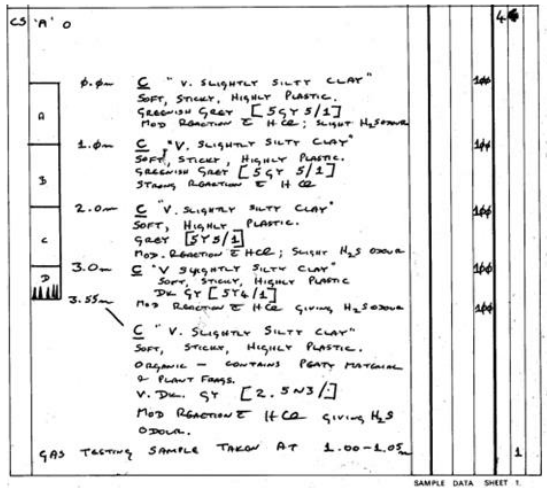 CS 'A' 0 4
0.0m C "V. SLIGHTLY SILTY CLAY" 100
SOFT, STICKY, HIGHLY PLASTIC.
A GREENISH GREY [5GY 5/1]
MOD REACTION C̄ HCl; SLIGHT H2S ODOUR
1.0m C "V. SLIGHTLY SILTY CLAY" 100
SOFT, STICKY, HIGHLY PLASTIC.
B GREENISH GREY [5GY 5/1]
STRONG REACTION C̄ HCl
2.0m C "V. SLIGHTLY SILTY CLAY" 100
SOFT, HIGHLY PLASTIC.
C GREY [5Y5/1]
MOD. REACTION C̄ HCl; SLIGHT H2S ODOUR
3.0m C "V SLIGHTLY SILTY CLAY" 100
D SOFT, STICKY, HIGHLY PLASTIC
DK. GY [5Y4/1]
3.55m MOD REACTION C̄ HCl GIVING H2S ODOUR 100
C "V. SLIGHTLY SILTY CLAY"
SOFT, STICKY, HIGHLY PLASTIC.
ORGANIC - CONTAINS PEATY MATERIAL
& PLANT FRAGS.
V. DK. GY [2.5N3/.]
MOD REACTION C̄ HCl GIVING H2S
ODOUR.
GAS TESTING SAMPLE TAKEN AT 1.00-1.05m 1
SAMPLE DATA SHEET 1.